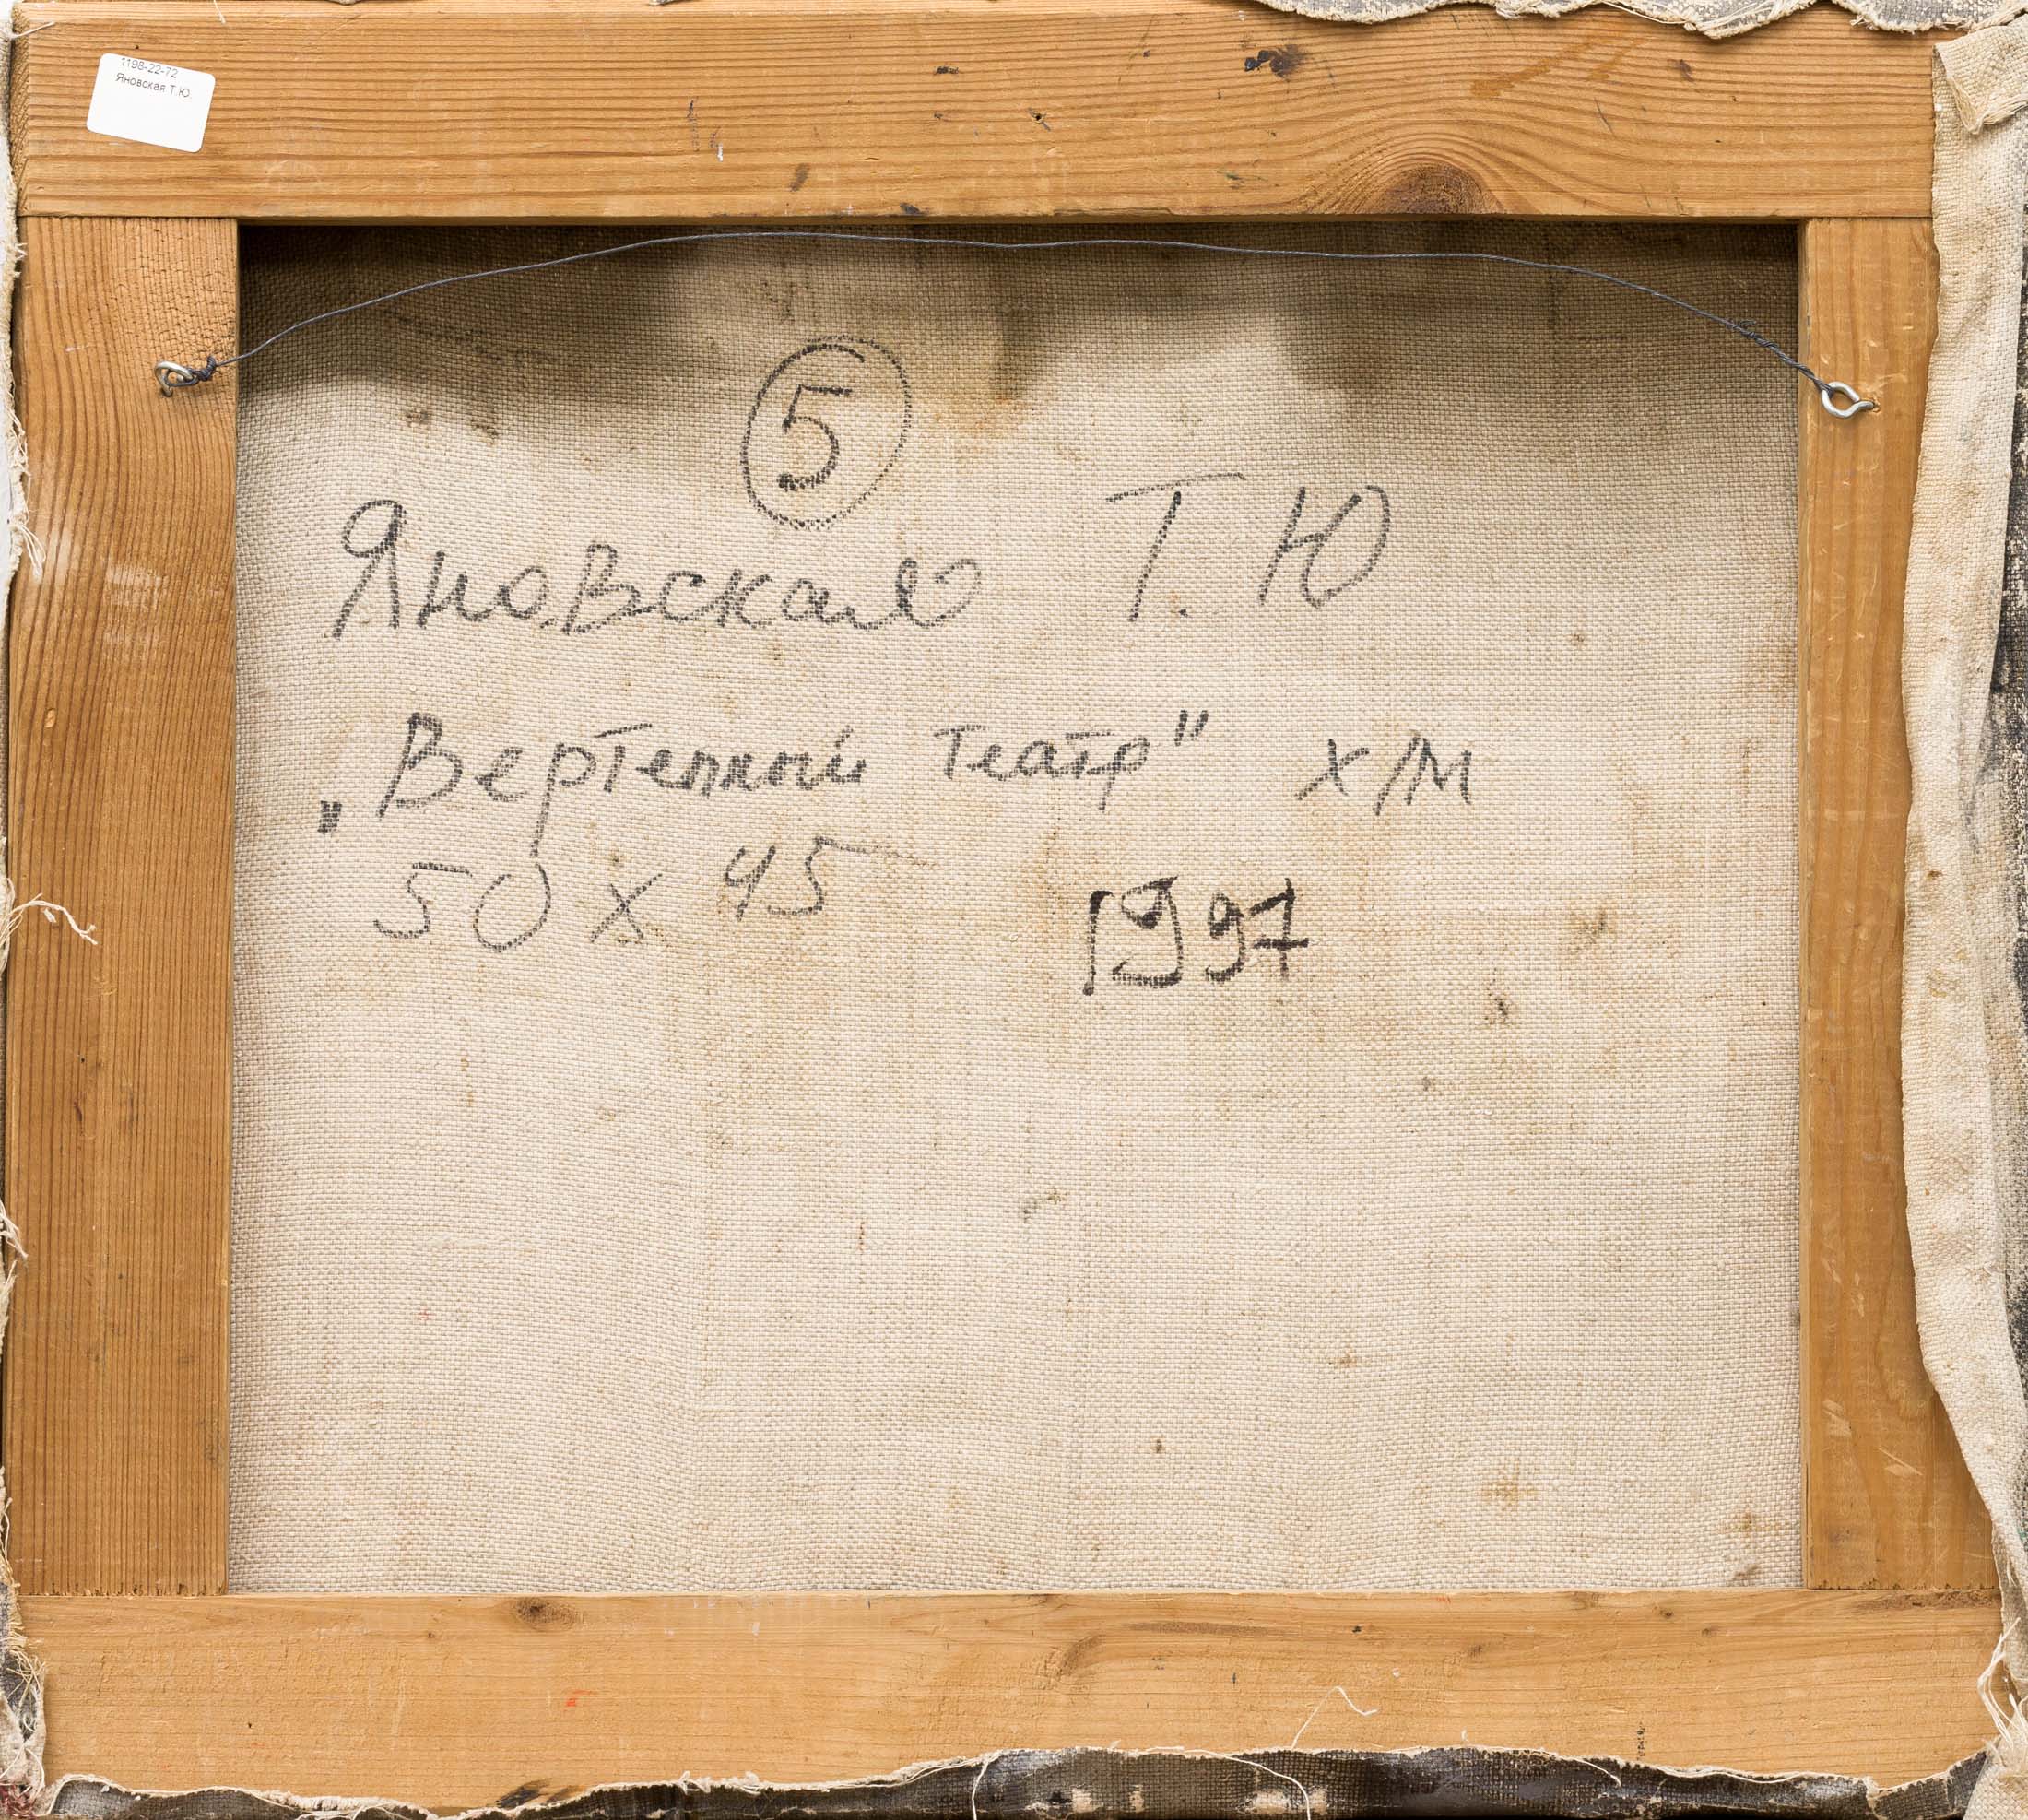 1198-22-72
Яновская Т.Ю.
5
Яновская Т. Ю
„Вертепный театр" х/м
50 х 45 1997